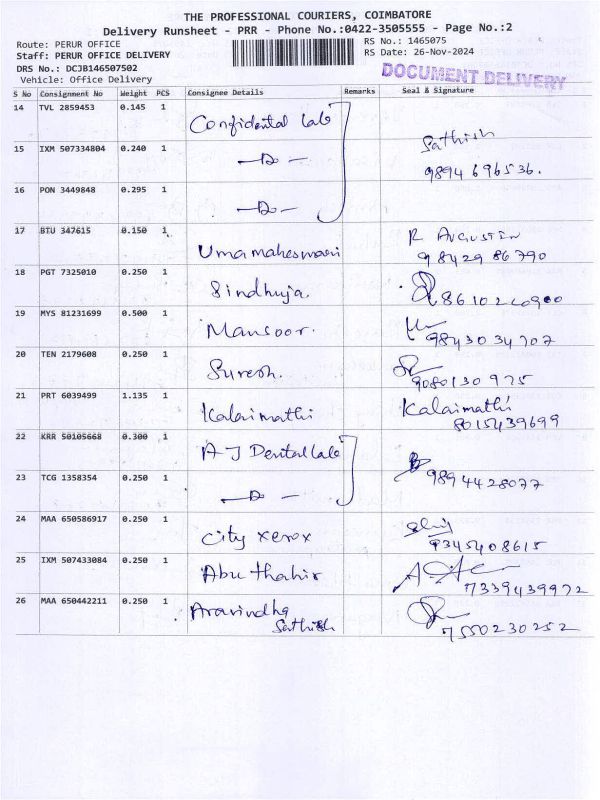 THE PROFESSIONAL COURIERS, COIMBATORE
Delivery Runsheet - PRR - Phone No.:0422-3505555 - Page No.:2
Route: PERUR OFFICE
RS No.: 1465075
Staff: PERUR OFFICE DELIVERY
RS Date: 26-Nov-2024
DRS No.: DCJB146507502
Vehicle: Office Delivery
DOCUMENT DELIVERY
S No Consignment No Weight PCS Consignee Details Remarks Seal & Signature
14 TVL 2859453 0.145 1 Confidental Lab
15 IXM 507334804 0.240 1 -Do- Sathish
9894696536.
16 PON 3449848 0.295 1 -Do-
17 BTU 347615 0.150 1 Umamaheswari R AUGUSTIN
9842986790
18 PGT 7325010 0.250 1 Sindhuja.
19 MYS 81231699 0.500 1 Mansoor.
9843034707
20 TEN 2179608 0.250 1 Suresh.
9080130975
21 PRT 6039499 1.135 1 Kalaimathi Kalaimathi
8015439699
22 KRR 50105668 0.300 1 A J Dental Lab
23 TCG 1358354 0.250 1 -Do- 9894428077
24 MAA 650586917 0.250 1 City xerox
9345408615
25 IXM 507433084 0.250 1 Abuthahir
7339439972
26 MAA 650442211 0.250 1 Aravindha
Sathish
7550230252